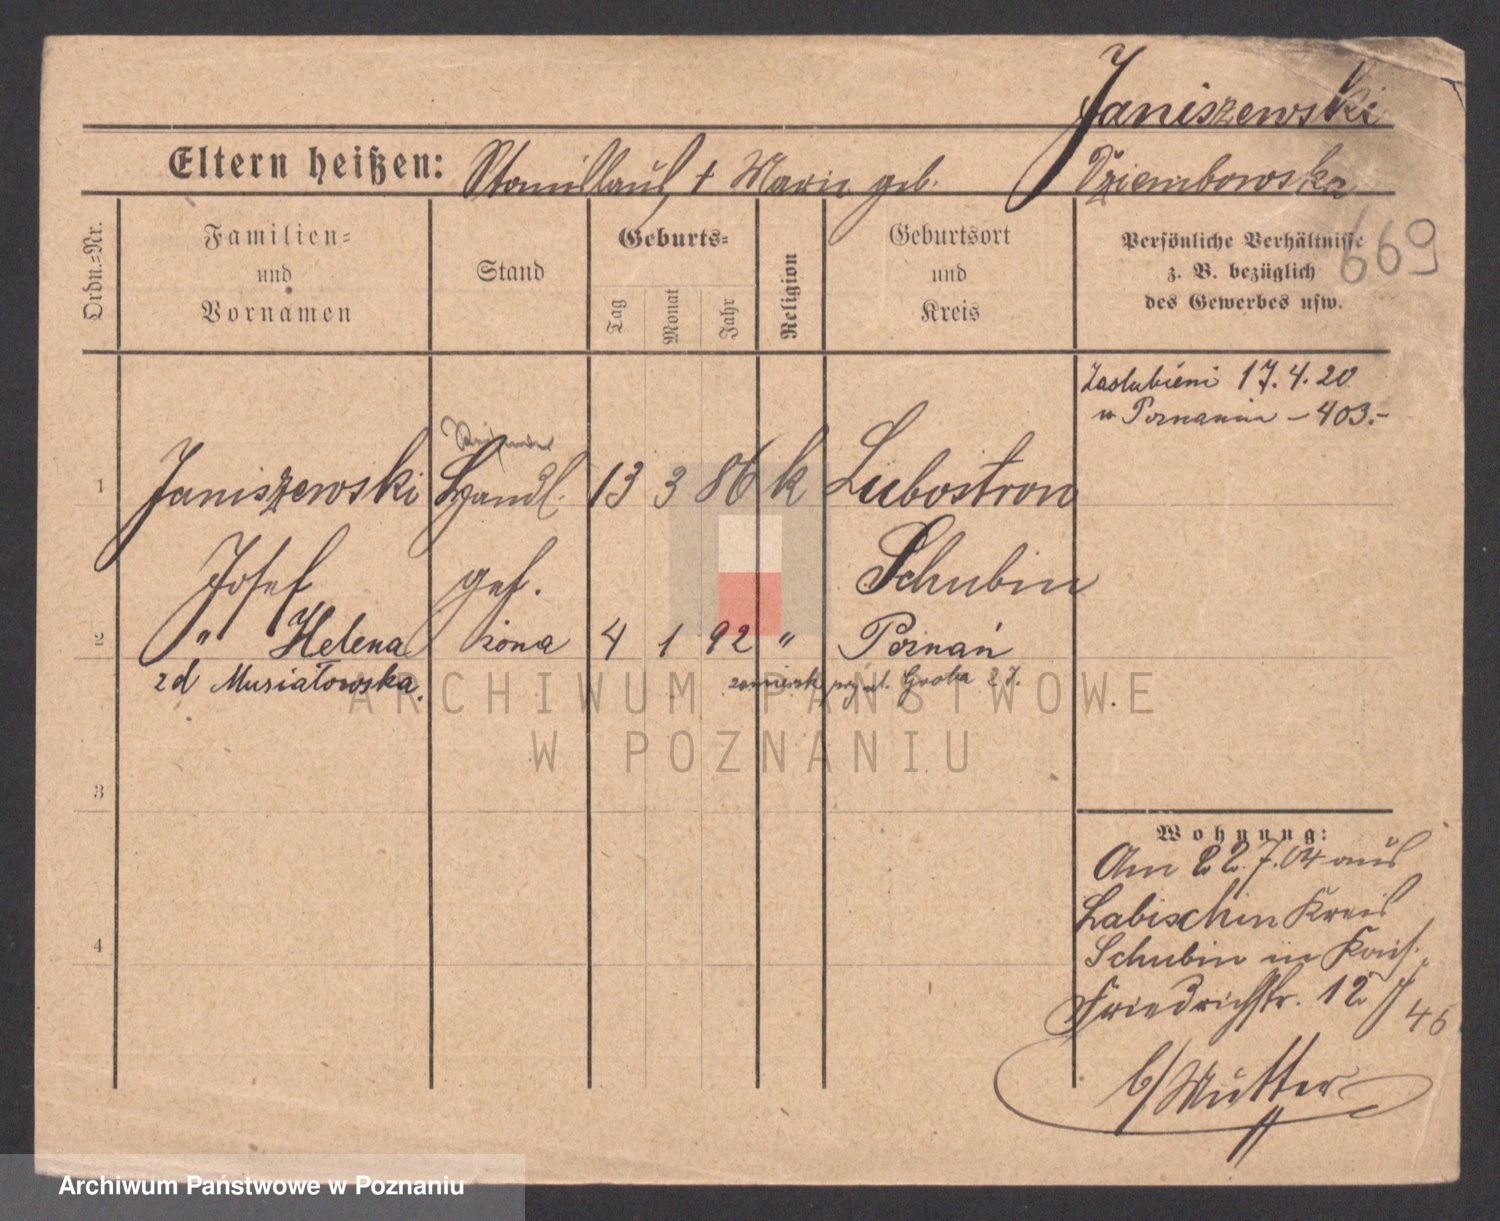 Janiszewski
Eltern heißen: Stanislaus, + Marie geb. Dziembowska
669
Ordn.=Nr.
Familien=
und
Vornamen
Stand
Geburts=
Tag
Monat
Jahr
Religion
Geburtsort
und
Kreis
Persönliche Verhältnisse
z. B. bezüglich
des Gewerbes usw.
Zaslubieni 17.4.20
w Poznaniu – 403.-
1 Janiszewski Handl. 13 3 86 k Lubostron
Josef geh. Schubin
2 " Helena żona 4 1 92 " Poznań
zd Musiałowska. zamieszk przy ul. Grobla 27.
3
4
Wohnung:
Am 22.7.04 aus
Labischin Kreis
Schubin in
Friedrichstr. 12 45
b/Mutter
ARCHIWUM PAŃSTWOWE
W POZNANIU
Archiwum Państwowe w Poznaniu